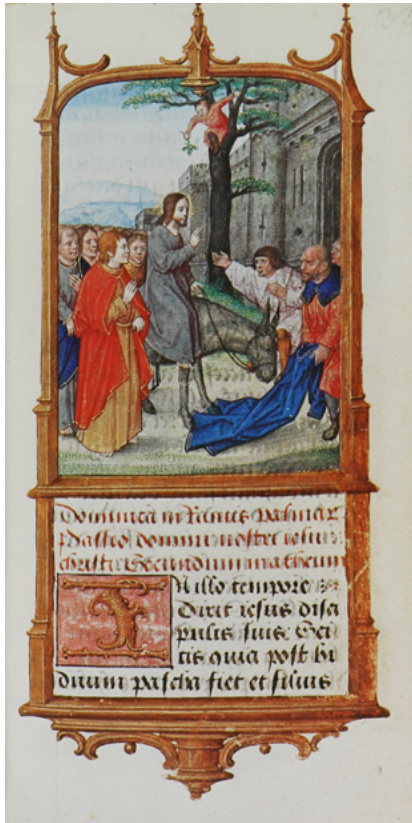 Dominica in Ramis palmar
Passio domini nostri iesu
christi Secundum matheum
In illo tempore
Dixit iesus disci
pulis suis Sci
tis quia post bi
duum pascha fiet et filius